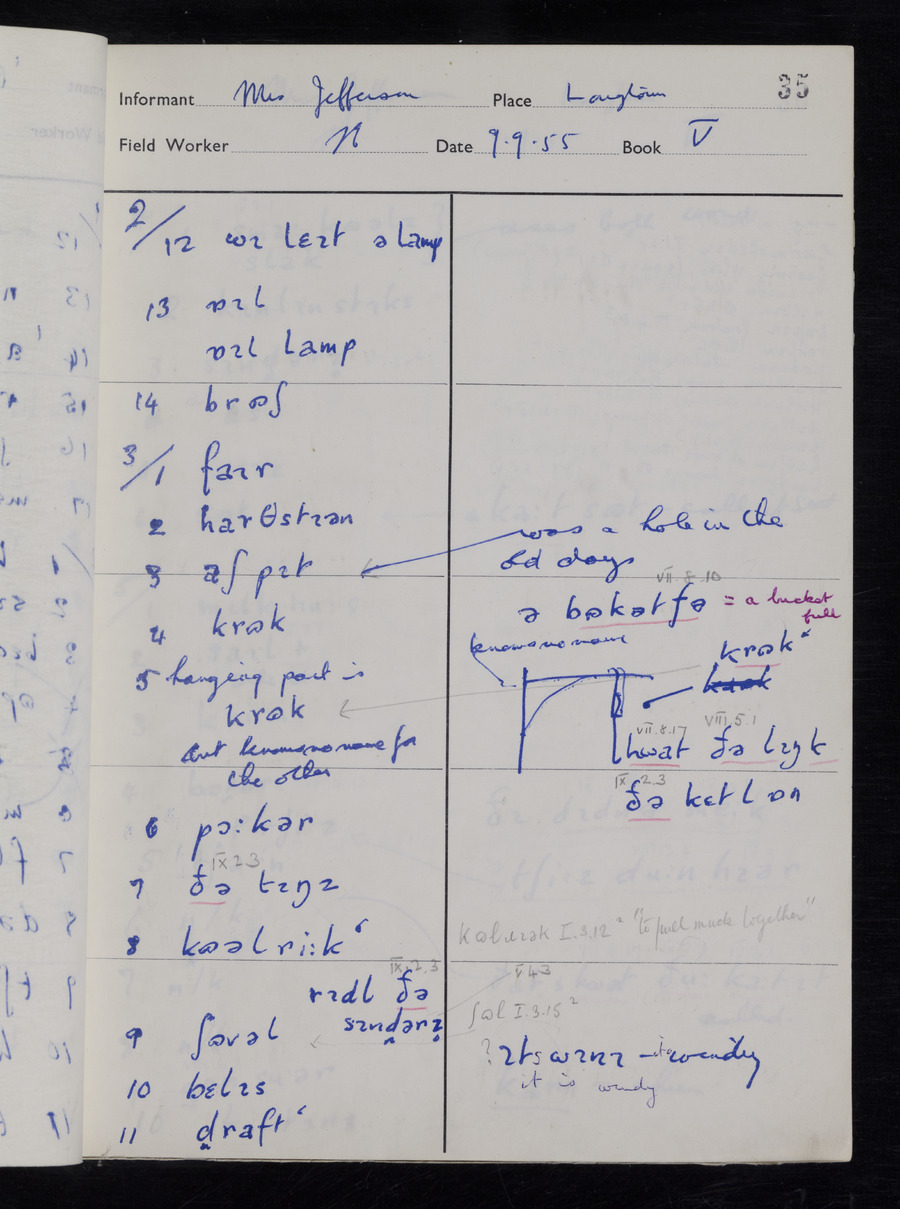 35
Informant Mrs Jefferson Place Longtown
Field Worker N Date 9.9.55 Book V
2/12 wɪ lɛɪt ə lamp
13 ɒɪl
ɒɪl lamp
14 brɷʃ
3/1 faɪr
2 harθstɪən
3 aʃpɪt
was a hole in the
old days
VII.8.10
4 krɷk
ə bɷkətfə = a bucket
full
knows no name
5 hanging part is
krɷk
but knows no name for
the other
krɷk
VII.8.17 VIII.5.1
hwat ðə lɪŋk
IX.2.3
ðə kɛtl ɒn
6 pɔ:kər
IX 2 3
7 ðə tɪŋz
8 kɷəlri:k
I.3.12 "to pull muck together"
IX.2.3
rɪdl ðə
sɪndərz
V 4 3
ʃɷl I.3.15
9 ʃɷvəl
? ɪts wɪnɪ – its windy
it is windy
10 bɛlɪs
11 draft